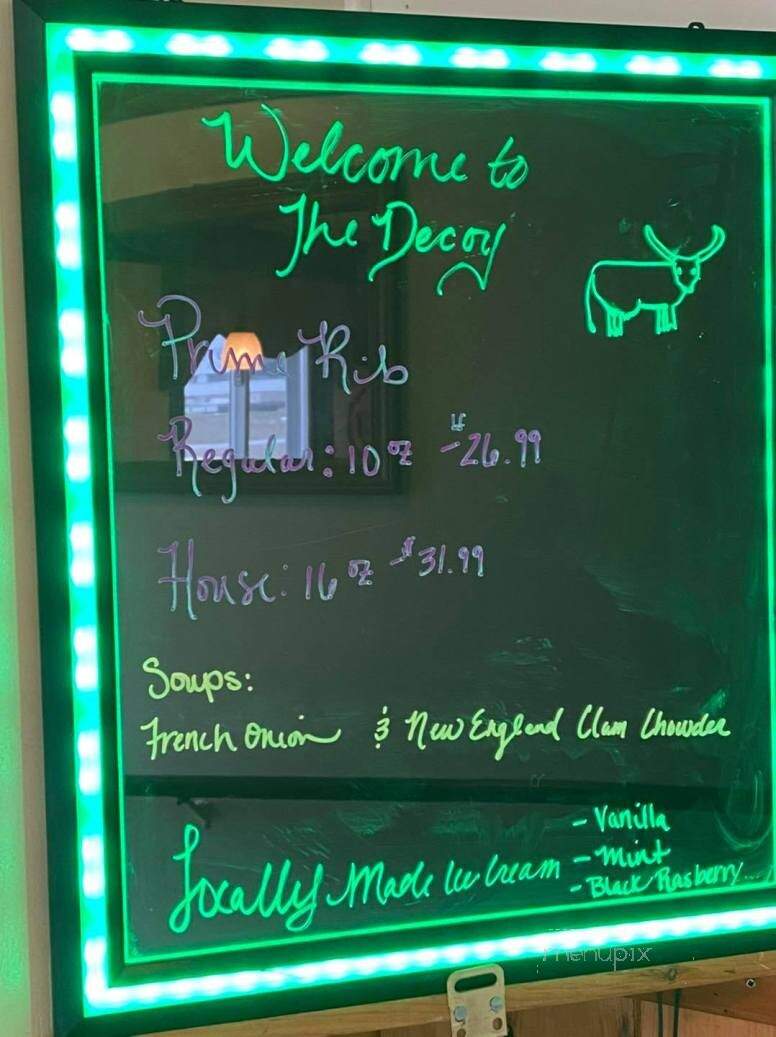 Welcome to
The Decoy
Prime Rib
Regular: 10 oz $26.99
House: 16 oz $31.99
Soups:
French Onion & New England Clam Chowder
Locally Made Ice Cream
- Vanilla
- Mint
- Black Rasberry...
menupix